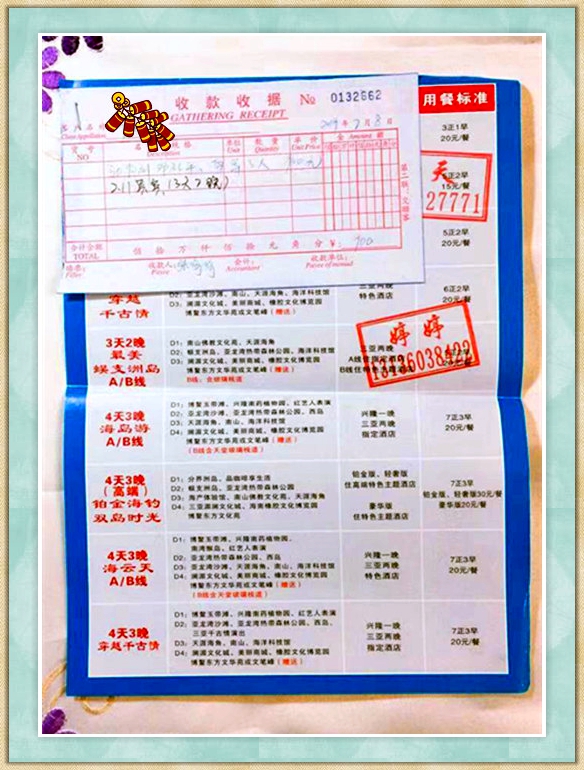 收款收据 № 0132662
GATHERING RECEIPT
货号 NO
规格 Description
单位 Unit
数量 Quantity
单价 Unit Price
金额 Amount
合计金额 TOTAL
佰 拾 万 仟 佰 拾 元 角 分 ¥:
收款人: Payee
会计: Accountant
交款单位:
用餐标准
3正1早
20元/餐
天
27771
5正2早
15元/餐
5正2早
20元/餐
穿越
千古情
D2:亚龙湾沙滩、南山、天涯海角、海洋科技馆
D3:澜源文化城、美丽商城、橡胶文化博览园
博鳌东方文华苑或文笔峰(赠送)
三亚两晚
特色酒店
6正2早
20元/餐
3天2晚
最美
蜈支洲岛
A/B线
D1:南山佛教文化苑、天涯海角
D2:蜈支洲岛、亚龙湾热带森林公园、海洋科技馆
D3:澜源文化城、美丽商城、橡胶文化博览园
博鳌东方文华苑或文笔峰(赠送)
三亚两晚
婷婷
4天3晚
海岛游
A/B线
D1:博鳌玉带滩、兴隆南药植物园、红艺人表演
D2:亚龙湾沙滩、亚龙湾热带森林公园、西岛
D3:天涯海角、南山、海洋科技馆
D4:澜源文化城、美丽商城、橡胶文化博览园
博鳌东方文华苑或文笔峰(赠送)
(B线含天堂玻璃栈道)
兴隆一晚
三亚两晚
指定酒店
7正3早
20元/餐
4天3晚
(高端)
铂金海钓
双岛时光
D1:分界洲岛、品咖啡享生活
D2:蜈支洲岛、亚龙湾热带森林公园
D3:海户体验馆、南山佛教文化苑、天涯海角
D4:三亚澜源文化城、海南橡胶文化博览园
博鳌东方文化苑
铂金版、轻奢版
住高端特色主题酒店
豪华版
住特色主题酒店
7正3早
铂金版、轻奢版30元/餐
豪华版20元/餐
4天3晚
海云天
A/B线
D1:博鳌玉带滩、兴隆南药植物园、
南湾猴岛、红艺人表演
D2:亚龙湾热带森林公园、西岛
D3:亚龙湾沙滩、天涯海角、南山、海洋科技馆
D4:澜源文化城、美丽商城、橡胶文化博览园
博鳌东方文华苑或文笔峰(赠送)
(B线含天堂玻璃栈道)
兴隆一晚
三亚两晚
特色酒店
7正3早
20元/餐
4天3晚
穿越千古情
D1:博鳌玉带滩、兴隆南药植物园、红艺人表演
D2:亚龙湾沙滩、亚龙湾热带森林公园、西岛、
三亚千古情演出
D3:天涯海角、南山、海洋科技馆
D4:澜源文化城、美丽商城、橡胶文化博览园
博鳌东方文华苑或文笔峰(赠送)
兴隆一晚
三亚两晚
指定酒店
7正3早
20元/餐